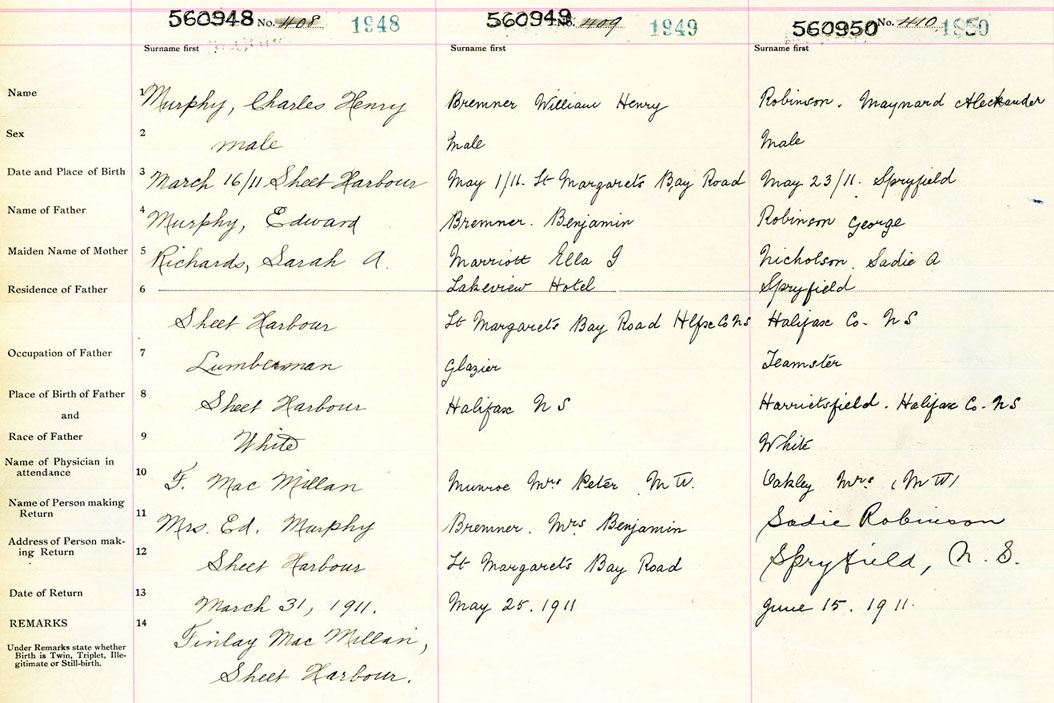 560948 No. 408 1948
560949 No. 409 1949
560950 No. 410 1950
Surname first Surname first Surname first
Name 1 Murphy, Charles Henry Bremner William Henry Robinson. Maynard Aleckander
Sex 2 male Male Male
Date and Place of Birth 3 March 16/11 Sheet Harbour May 1/11. St Margarets Bay Road May 23/11. Spryfield
Name of Father 4 Murphy, Edward Bremner. Benjamin Robinson George
Maiden Name of Mother 5 Richards, Sarah A. Marriott Ella J Nicholson Sadie A
Residence of Father 6 Lakeview Hotel Spryfield
Sheet Harbour St Margarets Bay Road Hlfx Co NS Halifax Co. N S
Occupation of Father 7 Lumberman Glazier Teamster
Place of Birth of Father 8 Sheet Harbour Halifax N S Harrietsfield. Halifax Co. NS
and
Race of Father 9 White White
Name of Physician in
attendance 10 F. Mac Millan Munroe Mrs Peter M W. Oakley Mrs (M W)
Name of Person making
Return 11 Mrs. Ed. Murphy Bremner. Mrs Benjamin Sadie Robinson
Address of Person mak-
ing Return 12 Sheet Harbour St Margarets Bay Road Spryfield, N. S.
Date of Return 13 March 31, 1911. May 25. 1911 June 15. 1911.
REMARKS 14 Finlay Mac Millan,
Under Remarks state whether
Birth is Twin, Triplet, Ille-
gitimate or Still-birth.
Sheet Harbour.